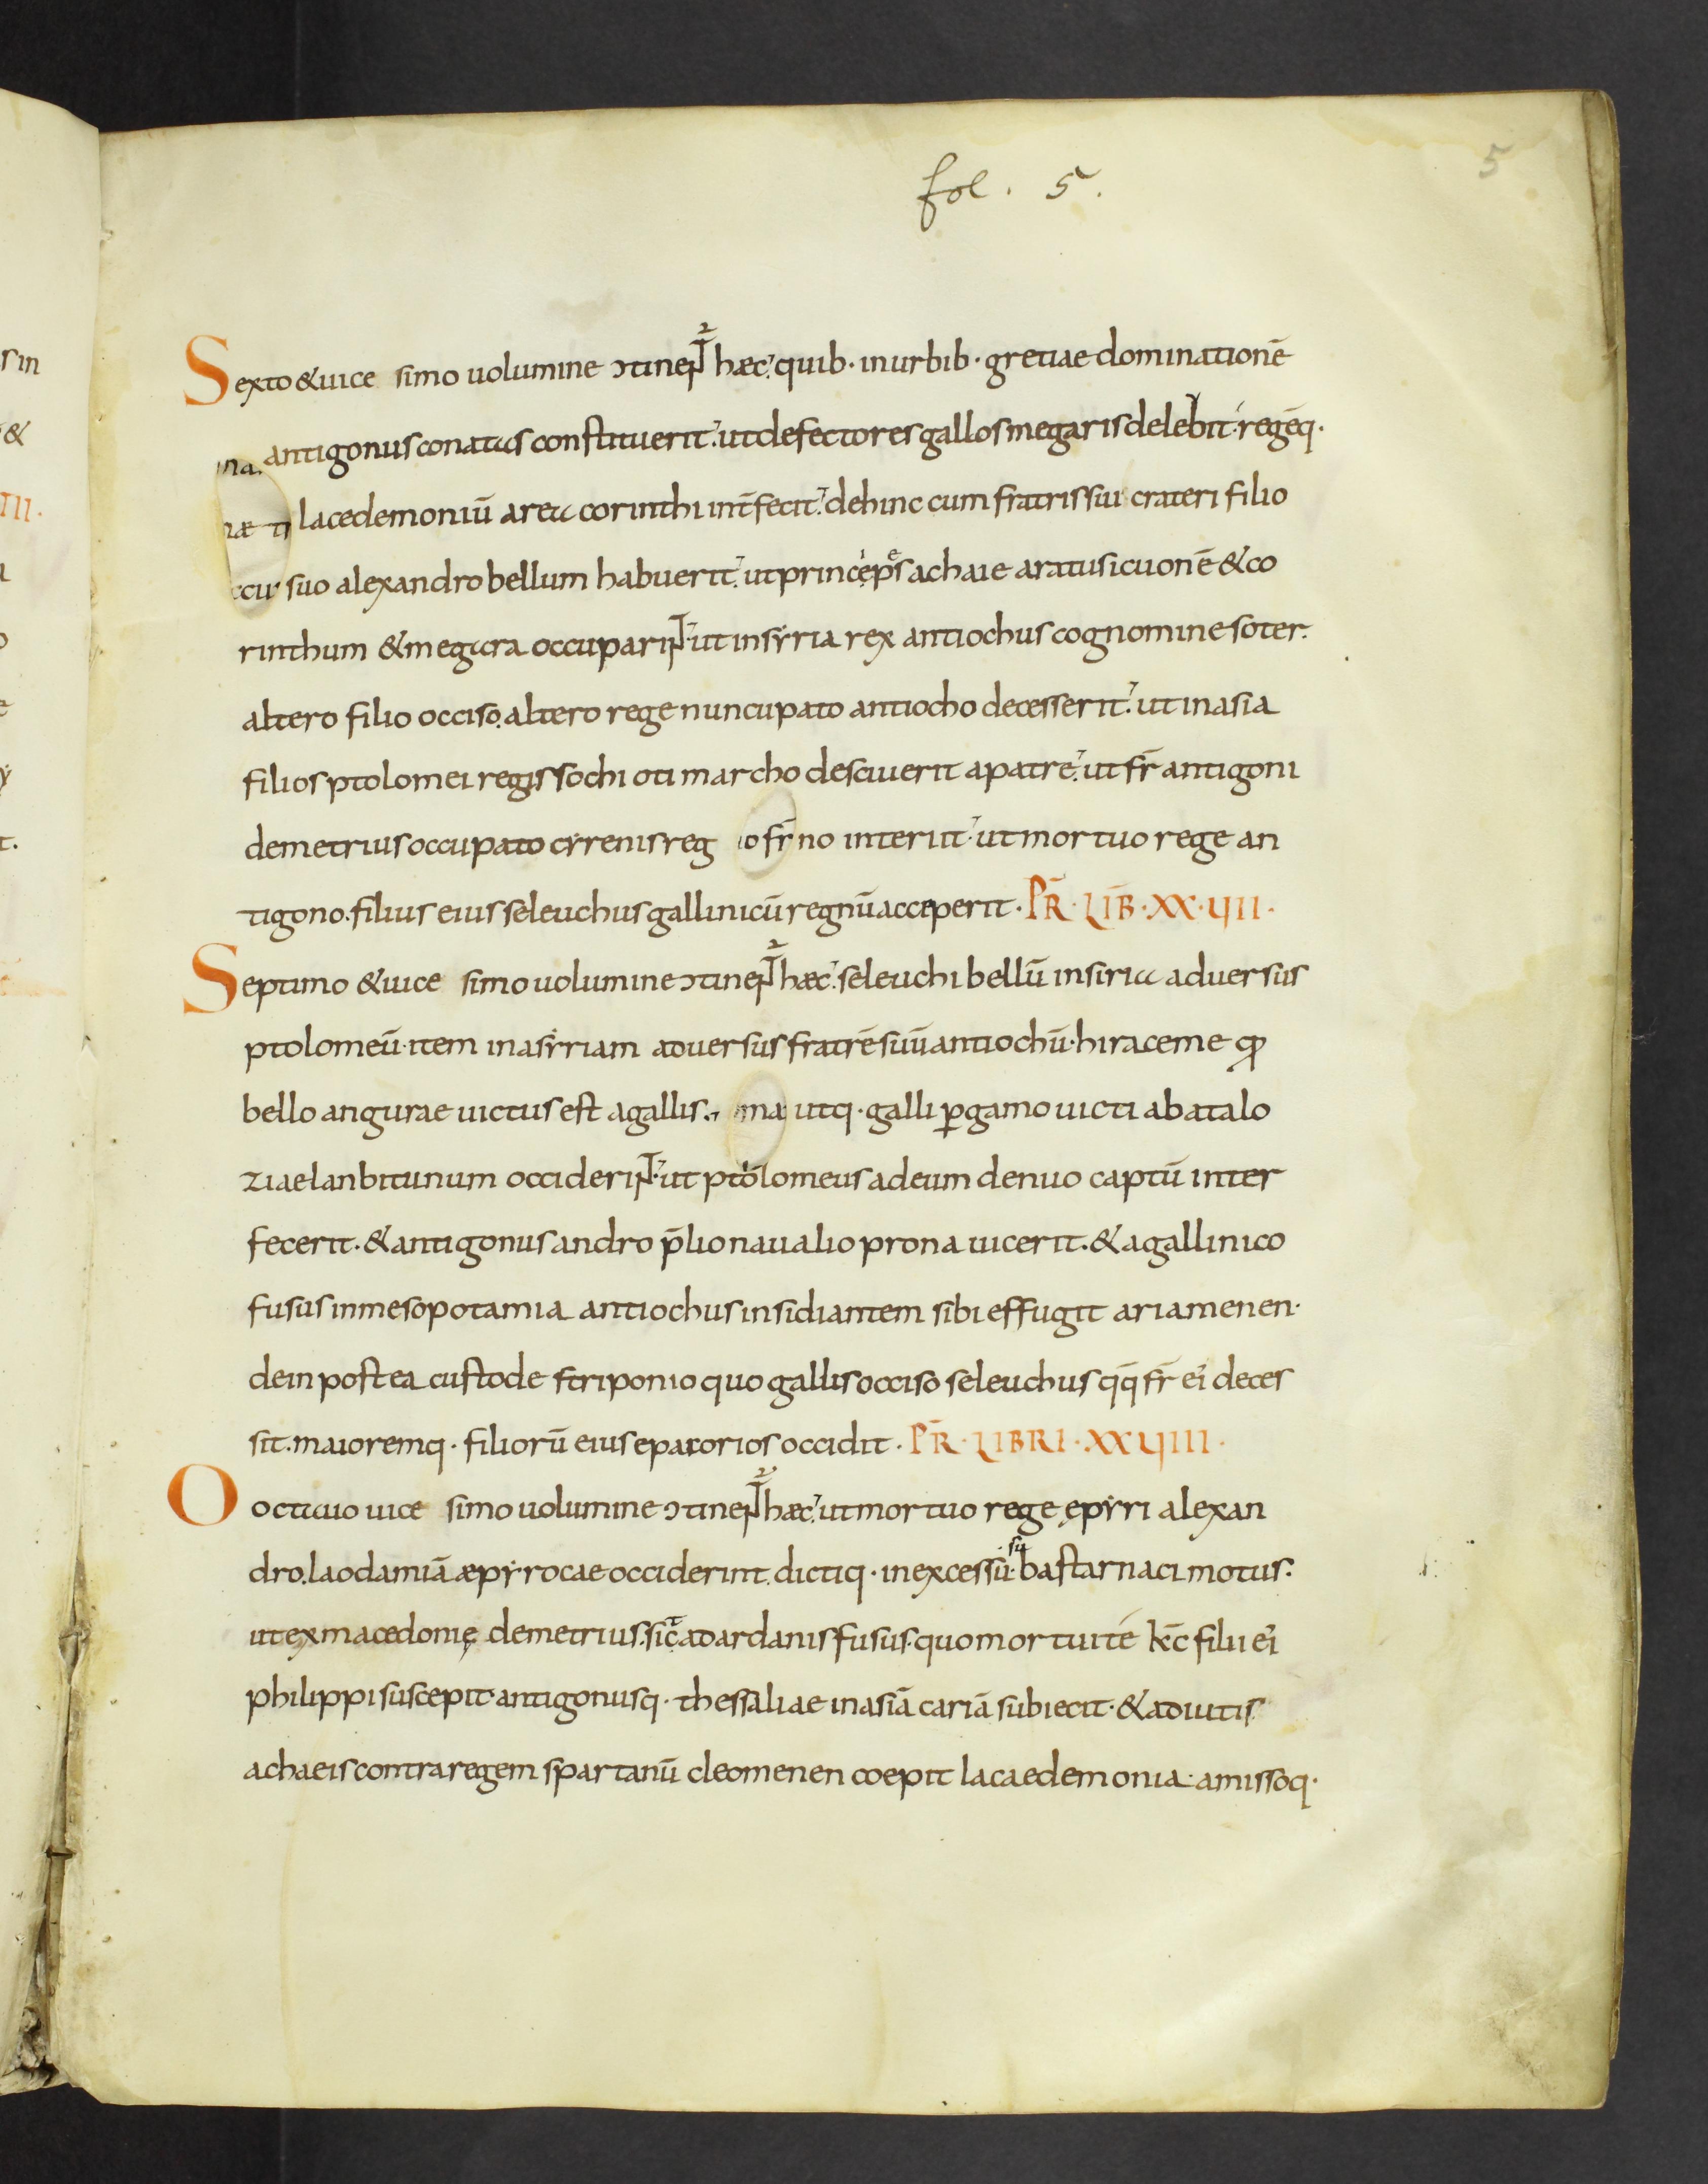 fol. 5.
5
Sexto & uice simo uolumine ↄtinent̄ haec. quib· in urbib· gretiae dominationē
antigonus conatus constituerit. ut defectores gallos megaris delebit. regēq·
lacedemoniū areu corinthi int̄fecit. dehinc cum fratris sui crateri filio
suo alexandro bellum habuerit. ut princeps achaie aratus icuonē & co
rinthum & megara occuparint. ut in syria rex antiochus cognomine soter.
altero filio occiso. altero rege nuncupato antiocho decesserit. ut in asia
filios ptolomei regis sochi oti marcho desciuerit a patre. ut fr̄ antigoni
demetrius occupato cyrenis reg no interiit. ut mortuo rege an
tigono. filius eius seleuchus gallinicū regnū acceperit. PR̄· LIB̄· XX·UII·
Septimo & uice simo uolumine ↄtinent̄ haec. seleuchi bellū in siria aduersus
ptolomeū. item in asyriam aduersus fratrē suū antiochū. hiraceme q̄
bello angurae uictus est a gallis. utq· galli ꝑgamo uicti ab atalo
ziaelan bitunum occiderint. ut ptolomeus adeum denuo captū inter
fecerit. & antigonus andro p̄lio naualio prona uicerit. & a gallinico
fusus in mesopotamia antiochus insidiantem sibi effugit ariamenen·
dein postea custode striponio quo gallis occiso seleuchus qq̄ fr̄ ei' deces
sit. maioremq· filiorū eius epatorios occidit. PR̄· LIBRI· XXUIIII·
Ooctauo uice simo uolumine ↄtinent̄ haec. ut mortuo rege ępyri alexan
dro. laodamiā aepyrocae occiderint. dictiq· in excessū. bastarnaci motus.
ut ex macedonię demetrius. sic a dardanis fusus. quo mortui te k̄c filii ei'
philippi suscepit antigonusq· thessaliae in asiā cariā subiecit. & adiutis
achaeis contra regem spartanū cleomenen coepit lacaedemonia. amissoq·